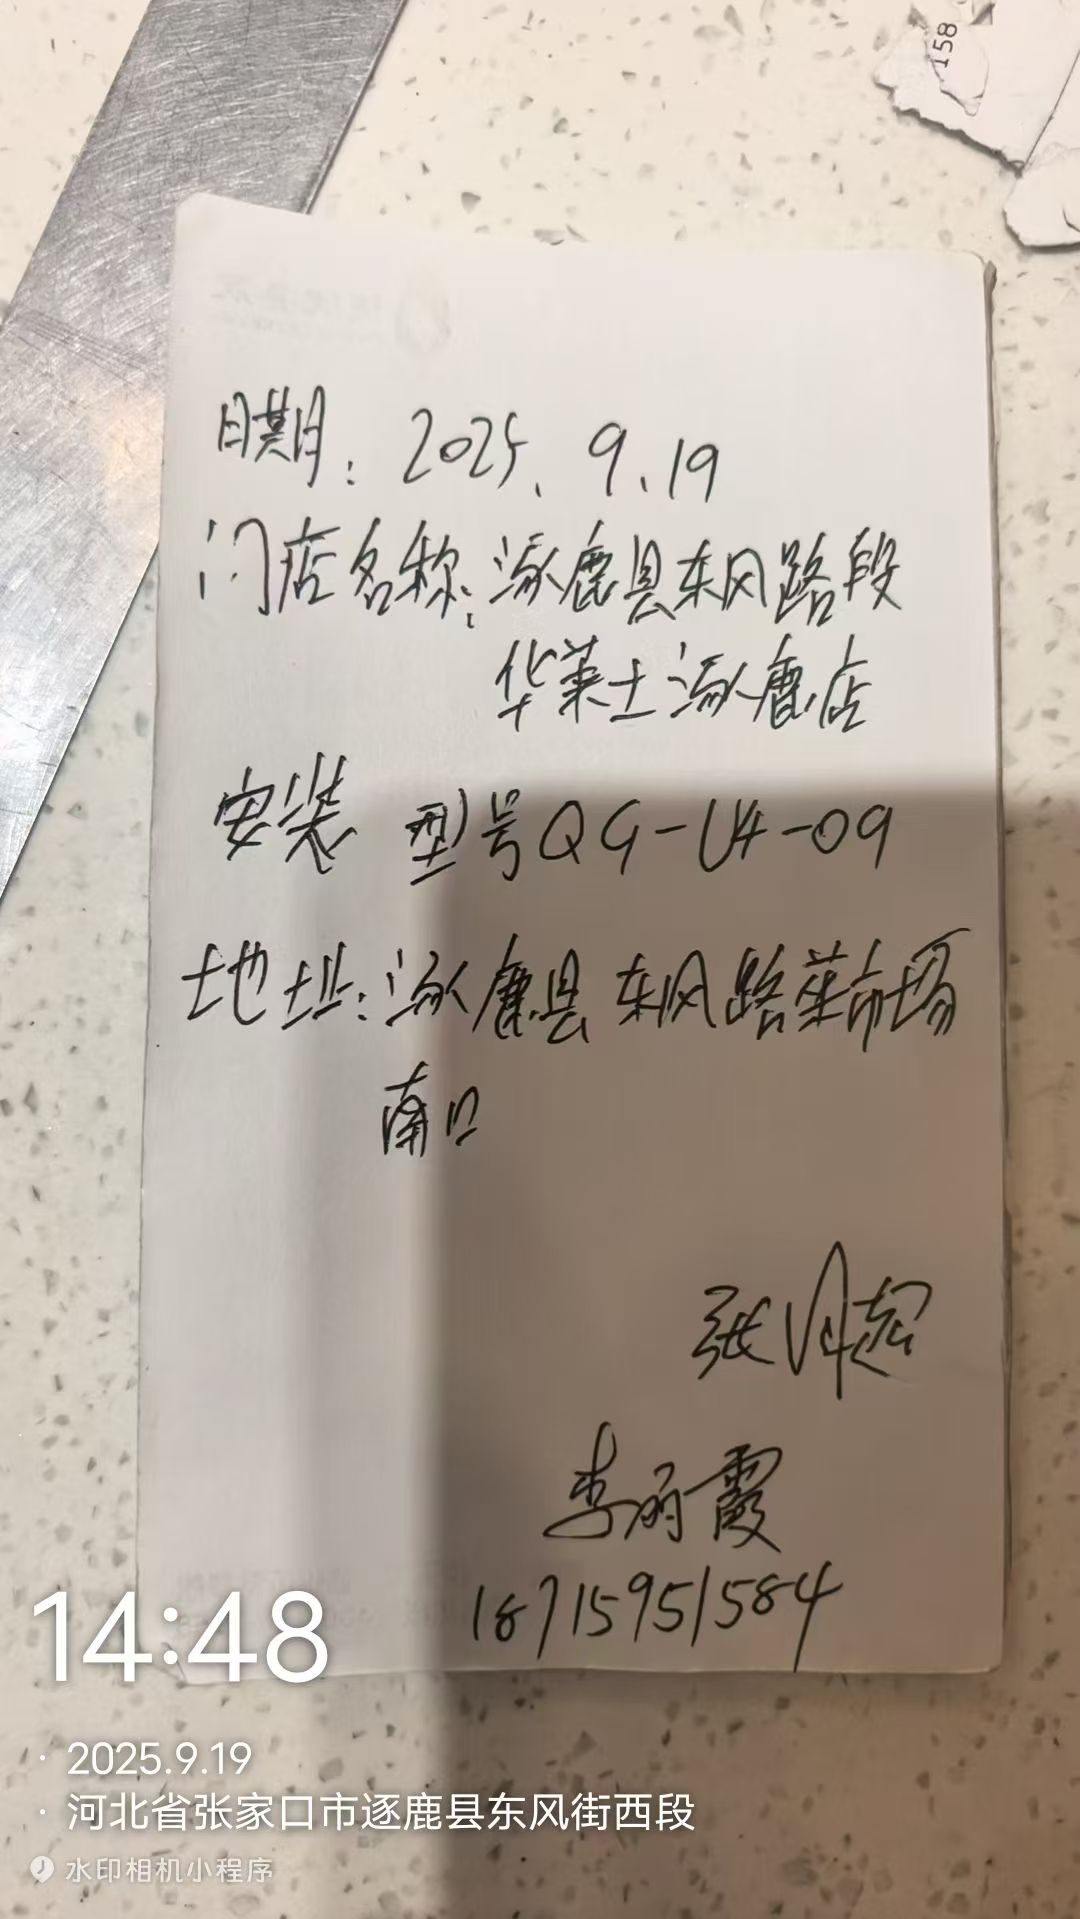 158
日期：2025.9.19
门店名称：涿鹿县东风路段
华莱士涿鹿店
安装 型号QG-U4-09
地址：涿鹿县东风路菜市场
南口
张
李丽霞
18715951584
14:48
· 2025.9.19
· 河北省张家口市逐鹿县东风街西段
水印相机小程序